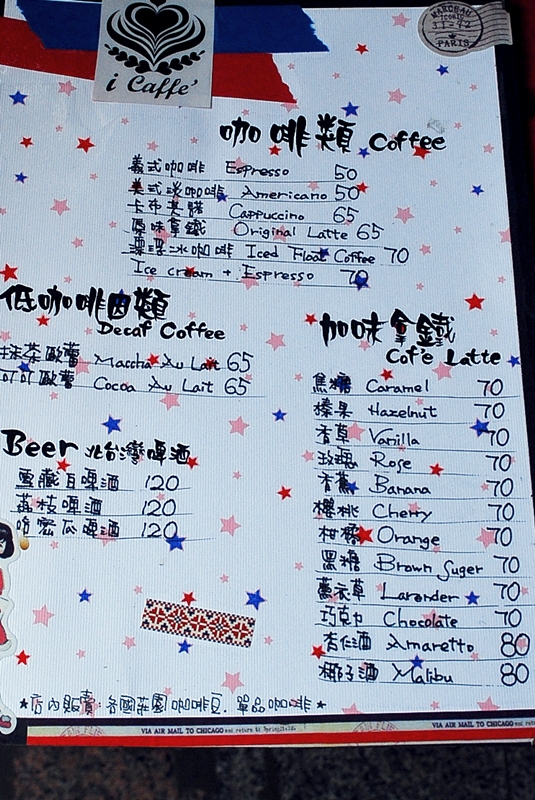 i Caffe'
MARCHAU
ICONIC
PARIS
咖啡類 Coffee
義式咖啡 Espresso 50
美式淡咖啡 Americano 50
卡布其諾 Cappuccino 65
原味拿鐵 Original Latte 65
漂浮冰咖啡 Iced Float Coffee 70
Ice cream + Espresso 70
低咖啡因類
Decaf Coffee
抹茶歐蕾 Maccha Au Lait 65
可可歐蕾 Cocoa Au Lait 65
加味拿鐵
Cof'e Latte
焦糖 Caramel 70
榛果 Hazelnut 70
香草 Vanilla 70
玫瑰 Rose 70
香蕉 Banana 70
櫻桃 Cherry 70
柑橘 Orange 70
黑糖 Brown Suger 70
薰衣草 Larender 70
巧克力 Chocolate 70
杏仁酒 Amaretto 80
椰子酒 Malibu 80
Beer 北台灣啤酒
雪藏白啤酒 120
荔枝啤酒 120
哈密瓜啤酒 120
★店內販賣 各國莊園咖啡豆. 單品咖啡★
VIA AIR MAIL TO CHICAGO and return to Springfield.
VIA AIR MAIL TO CHICAGO and return to